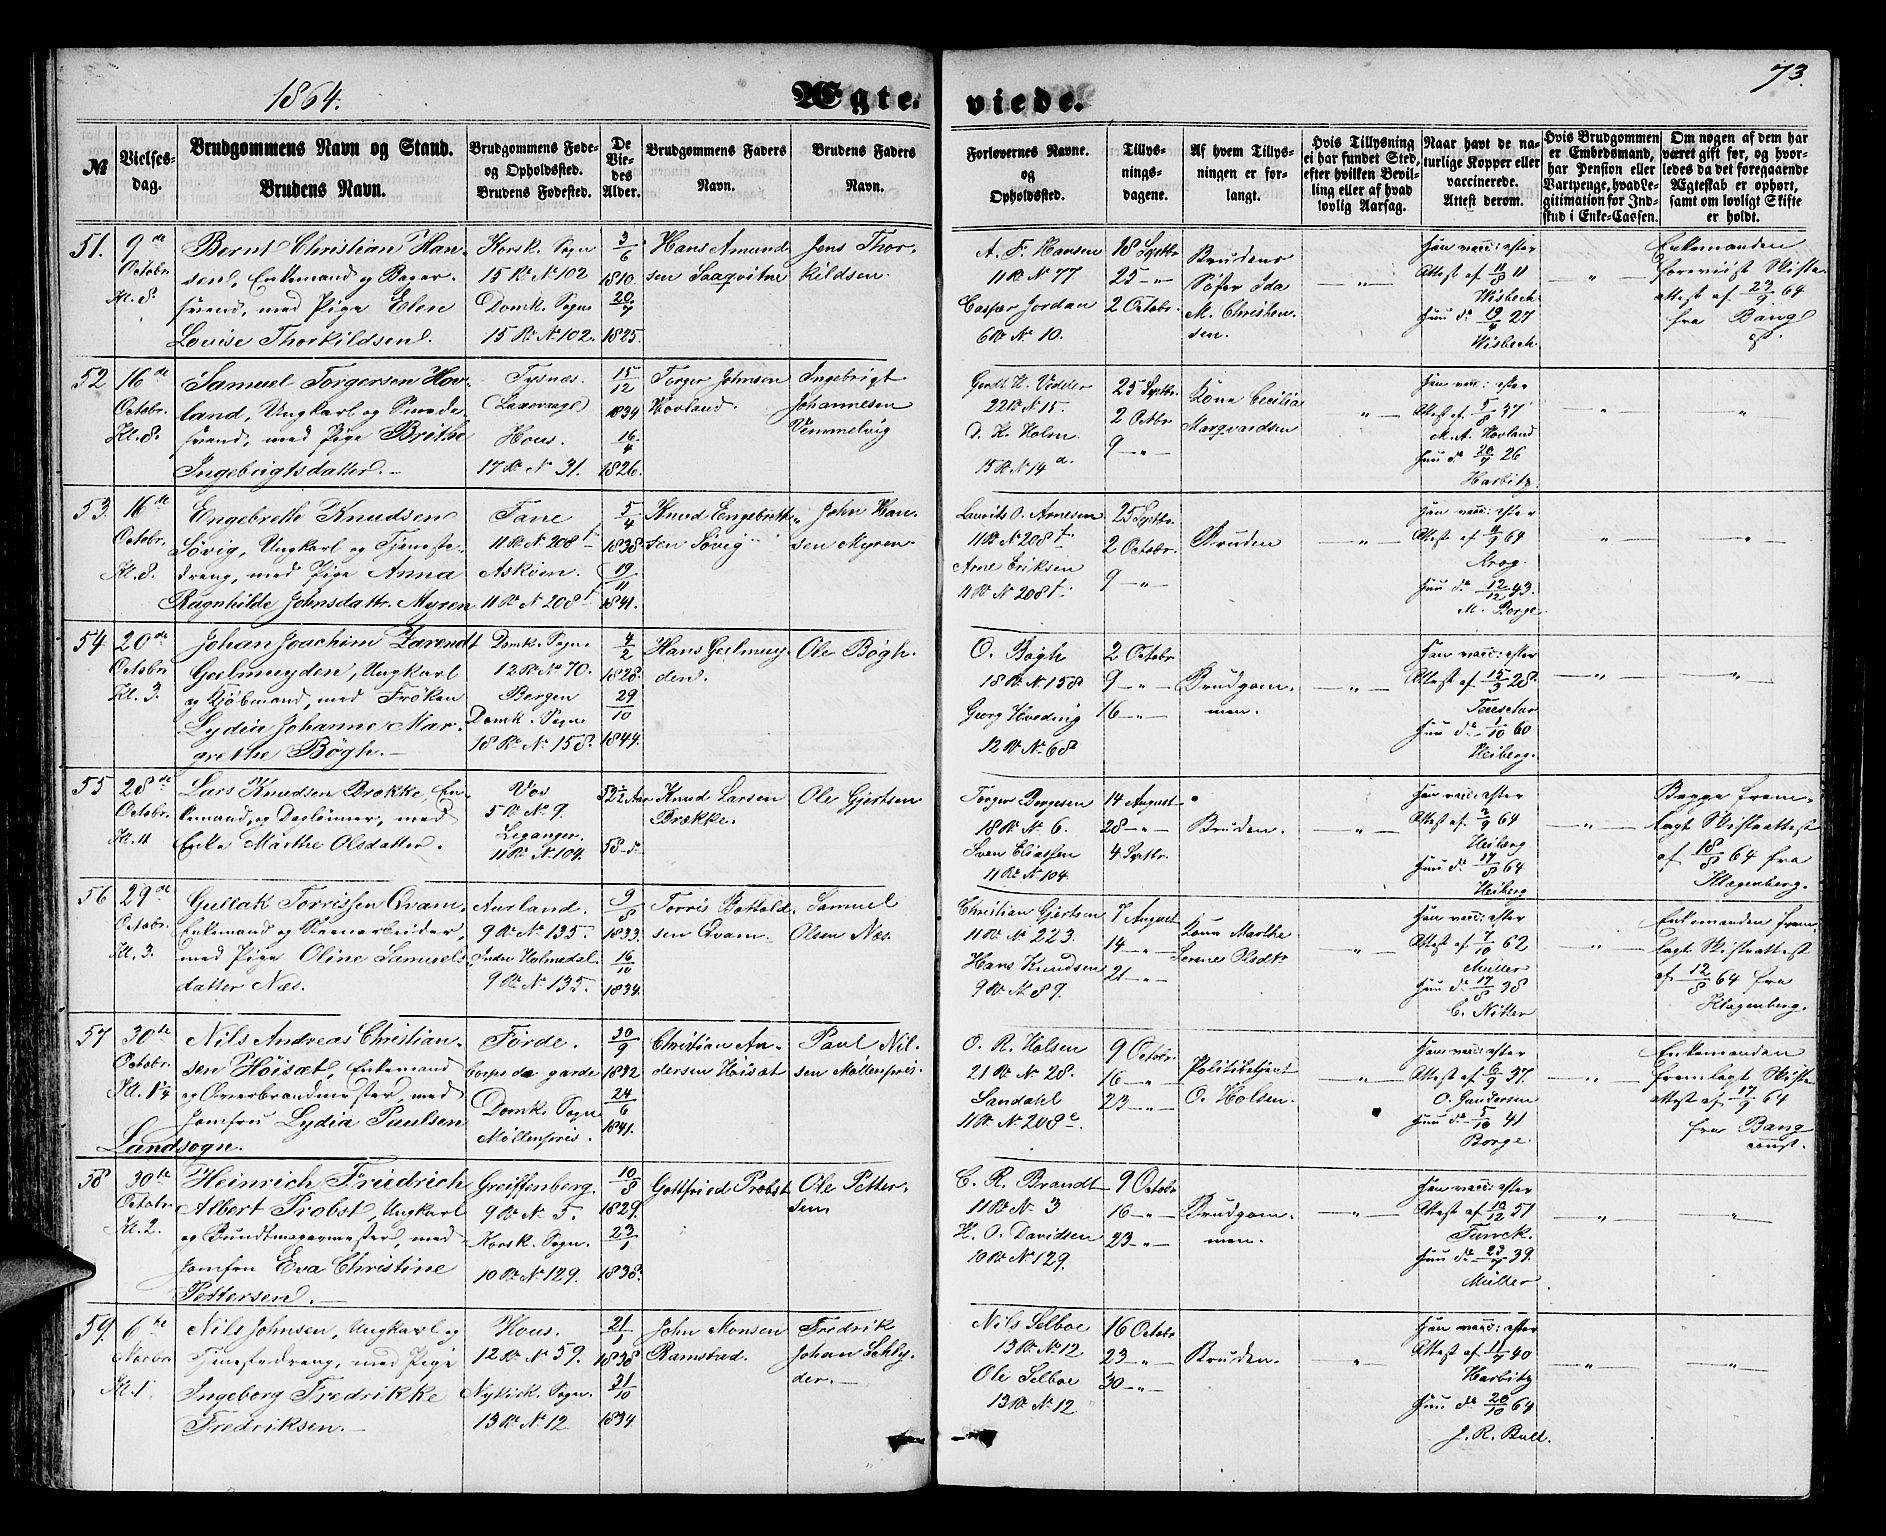 1864.
Ægte-
viede.
73.
№
Vielses-
dag.
Brudgommens Navn og Stand.
Brudens Navn.
Brudgommens Føde-
og Opholdssted.
Brudens Fødested.
De
Vie-
des
Alder.
Brudgommens Faders
Navn.
Brudens Faders
Navn.
Forlovernes Navne.
og
Opholdssted.
Tillys-
nings-
dagene.
Af hvem Tillys-
ningen er for-
langt.
Hvis Tillysning
ei har fundet Sted,
efter hvilken Bevil-
ling eller af hvad
lovlig Aarsag.
Naar havt de na-
turlige Kopper eller
vaccinerede.
Attest derom.
Hvis Brudgommen
er Embedsmand,
har Pension eller
Vartpenge, hvad Le-
gitimation for Ind-
skud i Enke-Cassen.
Om nogen af dem har
været gift før, og hvor-
ledes da det foregaaende
Ægteskab er ophørt,
samt om lovligt Skifte
er holdt.
51.
9de
Octobr.
Kl. 8.
Bernt Christian Han-
sen, Enkemand og Bager-
svend, med Pige Elen
Lovise Thorkildsen.
Korsk. Sogn
15 R. N 102
Domk. Sogn
15 R. N 102.
3/6
1810.
20/7
1825.
Hans Amund-
sen Saaqvitne
Jens Thor-
kildsen.
A. F. Hansen
11 R. N 77
Casper Jordan
6 R. N 10.
18 Septbr.
25 — " —
2 Octobr.
Brudens
Søster Ida
M. Christen-
sen.
— " —
Han vacc: efter
Attest af 11/8 11
Wisbech.
Hun do 19/4 27
Wisbech.
— " —
Enkemanden
foreviist Skifte-
attest af 23/9 64
fra Bang
cst.
52
16de
Octobr.
Kl. 8.
Samuel Torgersen Hov-
land, Ungkarl og Smede-
svend, med Pige Brithe
Ingebrigtsdatter. —
Tysnæs.
Hous.
17 R. N 31.
15/12
1834
16/4
1826.
Torger Johnsen
Hovland.
Ingebrigt
Johannesen
Vemmelvig
Gerdt H. Vedeler
22 R. N 15.
D. K. Holm.
15 R. N 14 a.
25 Septbr.
2 Octbr.
9 — " —
Kone Cecilia
Marqvardsen
"
Han vacc: efter
Attest af 5/8 47
M. A. Hovland
Hun do 20/7 26
Harbitz
— " —
"
53.
16de
Octobr.
Kl. 8.
Engebreth Knudsen
Søvig, Ungkarl og Tjeneste-
dreng, med Pige Anna
Ragnhilde Johnsdattr. Myren
Fane
11 R. N 208 f
Askøen.
11 R. N 208 f
5/4
1838.
19/11
1841.
Knud Engebreth-
sen Søvig
John Han-
sen Myren.
Laurits O. Arnesen
11 R. N 208 f.
Arne Eriksen
11 R. N 208 f
25 Septbr.
2 Octobr.
9 — " —
Bruden
— " —
Han vacc: efter
Attest af 4/9 64
Krog.
Hun do 12/12 43.
M. Borge.
— " —
"
54
20de
Octobr.
Kl. 3.
Johan Joachim Zarendt
Geelmuyden, Ungkarl
og Kjøbmand, med Frøken
Lydia Johanne Mar-
grethe Bøgh. —
Domk. Sogn.
12 R. No 70.
Bergen
Domk. Sogn.
18 R. No 158.
4/2
1828.
29/10
1844.
Hans Geelmuy-
den.
Ole Bøgh.
O. Bøgh
18 R. N. 158
Georg Hveding
12 R. N. 68
2 Octobr.
9 — " —
16 — " —
Brudgom-
men.
— " —
Han vacc: efter
Attest af 15/3 28.
Hun do 1/10 60
Heiberg.
— " —
— " —
55
28de
Octobr.
Kl. 11
Lars Knudsen Brække, En-
kemand, og Dagløner, med
Enke Marthe Olsdatter.
Vos
5 R. No 9.
Leganger.
11 R. N 104.
52 1/2 Aar
58 - do
Knud Larsen
Brække.
Ole Gjertsen
Torger Bergesen
18 R. N. 6.
Sven Eliassen
11 R. N 104.
14 August
28 — " —
4 Septbr.
Bruden.
— " —
Han vacc: efter
Attest af 2/9 64
Heiberg
Hun do 17/8 64
Heiberg
— " —
Begge frem-
lagt Skifteattest
af 18/8 64 fra
Klagenberg.
56
29de
Octobr.
Kl. 3.
Gullak Torrissen Qvam,
Enkemand og Steenarbeider,
med Pige Oline Samuels-
datter Næs.
Aurland.
9 R. No 135.
Indre Holmedal.
9 R. No 135.
9/8
1833.
16/10
1834.
Torris Bottold-
sen Qvam.
Samuel
Olsen Næs.
Christian Gjertsen
11 R. N 223.
Hans Knudsen
9 R. N 89.
7 August
14 — " —
21 — " —
Kone Marthe
Serene Olsdtr.
— " —
Han vacc: efter
Attest af 7/10 62
Müller
Hun do 17/8 38
C. Nitter
"
Enkemanden frem-
lagt Skifteattest
af 12/8 64 fra
Klagenberg.
57
30te
Octobr.
Kl. 1¼
Nils Andreas Christian-
sen Høisæt, Enkemand
og Overbrandmester, med
Jomfru Lydia Paulsen
Landsogn.
Førde.
Corps de garde
Domk. Sogn
Møllenpris.
30/9
1832
24/6
1841.
Christian An-
dersen Høisæt
Paul Nil-
sen Møllenpris.
O. R. Holsen
21 R. N 28.
Sandahl
11 R. N 208 e.
9 Octobr.
16 — " —
23 — " —
Politibetjent
O. Holsen.
— " —
Han vacc: efter
Attest af 6/9 37.
O. Gundersen
Hun do 5/10 41
Borge
— " —
Enkemanden
fremlagt Skifte-
attest af 17/9 64
fra Bang
const.
58
30te
Octobr.
Kl. 2.
Heinrich Friedrich
Albert Probst, Ungkarl
og Bundtmagermester, med
Jomfru Eva Christine
Pettersen. —
Greiffenberg.
9 R. N. 5.
Korsk. Sogn.
10 R. No 129.
10/8
1829.
23/1
1838.
Gottfried Probst
Ole Petter-
sen
C. R. Brandt
11 R. N 3
H. O. Davidsen
10 R. N 129.
9 Octobr
16 — " —
23 — " —
Brudgom-
men.
— " —
Han vacc: efter
Attest af 10/12 51
Turck.
Hun do 23/7 39.
Müller
"
— " —
59.
6te
Novbr.
Kl. 1.
Nils Johnsen, Ungkarl og
Tjenestedreng, med Pige
Ingeborg Fredrikke
Fredriksen. —
Hous.
12 R. No 59.
Nykirk. Sogn.
13 R. No 12
21/1
1838
31/10
1834.
John Monsen
Ramstad.
Fredrik
Johan Schly-
der. —
Nils Selboe
13 R. N 12
Ole Selboe
13 R. N 12
16 Octobr
23 — " —
30 — " —
Bruden.
"
Han vacc: efter
Attest af 11/7 40
Harbitz
Hun do 20/10 64
J. R. Bull.
"
— " —